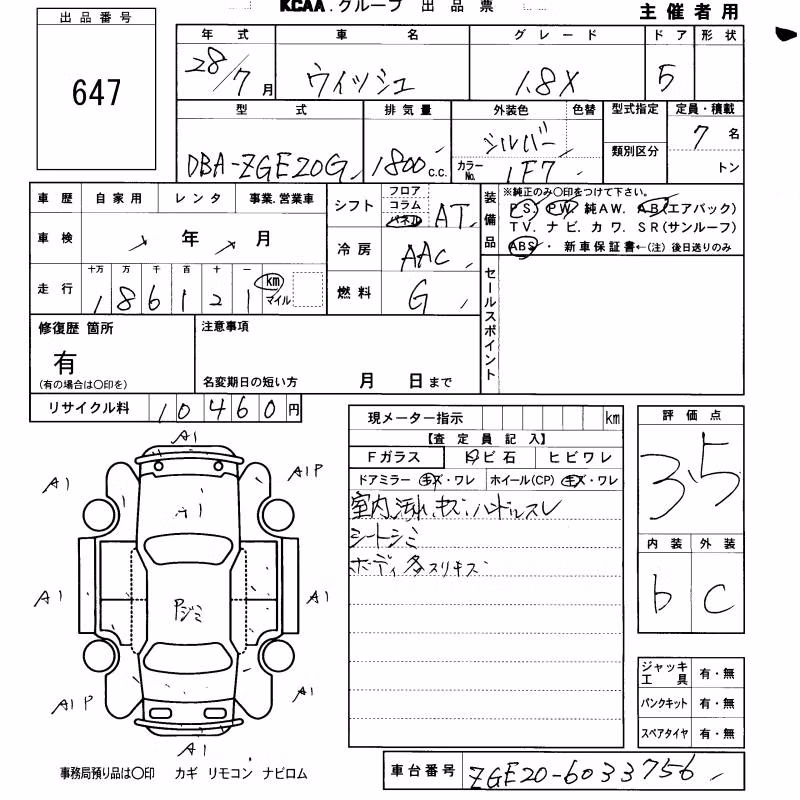 KCAA.グループ 出品票
主催者用
出品番号
647
年式 車名 グレード ドア 形状
28/7月 ウィッシュ 1.8X 5
型式 排気量 外装色 色替 型式指定 定員・積載
DBA-ZGE20G 1800c.c. シルバー カラーNo. 1F7 類別区分 7名 トン
車歴 自家用 レンタ 事業.営業車
車検 年 月
走行 十万 万 千 百 十 一
186121 km マイル
シフト フロア コラム パネル AT
冷房 AAC
燃料 G
装備品 ※純正のみ〇印をつけて下さい。
PS. PW. 純AW. AB(エアバック)
TV. ナビ. カワ. SR(サンルーフ)
ABS・ 新車保証書←(注)後日送りのみ
セールスポイント
修復歴 箇所
有
(有の場合は〇印を)
注意事項
名変期日の短い方 月 日まで
リサイクル料 10460円
現メーター指示 km
【査定員記入】
Fガラス トビ石 ヒビワレ
ドアミラー キズ・ワレ ホイール(CP) キズ・ワレ
室内汚れ、キズ、ハンドルスレ
シートシミ
ボディ各スリキズ
評価点
3.5
内装 外装
b C
ジャッキ工具 有・無
パンクキット 有・無
スペアタイヤ 有・無
A1
A1 A1P
A1
A1 A1
Pジミ
A1P A1
A1
事務局預り品は〇印 カギ リモコン ナビロム
車台番号 ZGE20-6033756